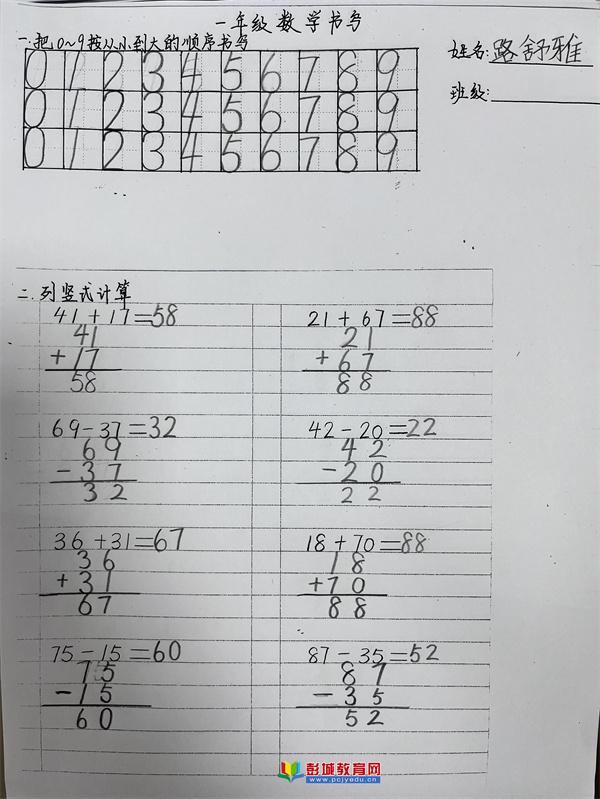 一年级数学书写
一.把0~9按从小到大的顺序书写
姓名:路舒雅
班级:
0 1 2 3 4 5 6 7 8 9
0 1 2 3 4 5 6 7 8 9
0 1 2 3 4 5 6 7 8 9
二.列竖式计算
41+17=58
41
+17
58
21+67=88
21
+67
88
69-37=32
69
-37
32
42-20=22
42
-20
22
36+31=67
36
+31
67
18+70=88
18
+70
88
75-15=60
75
-15
60
87-35=52
87
-35
52
彭城教育网
www.pcjyedu.cn